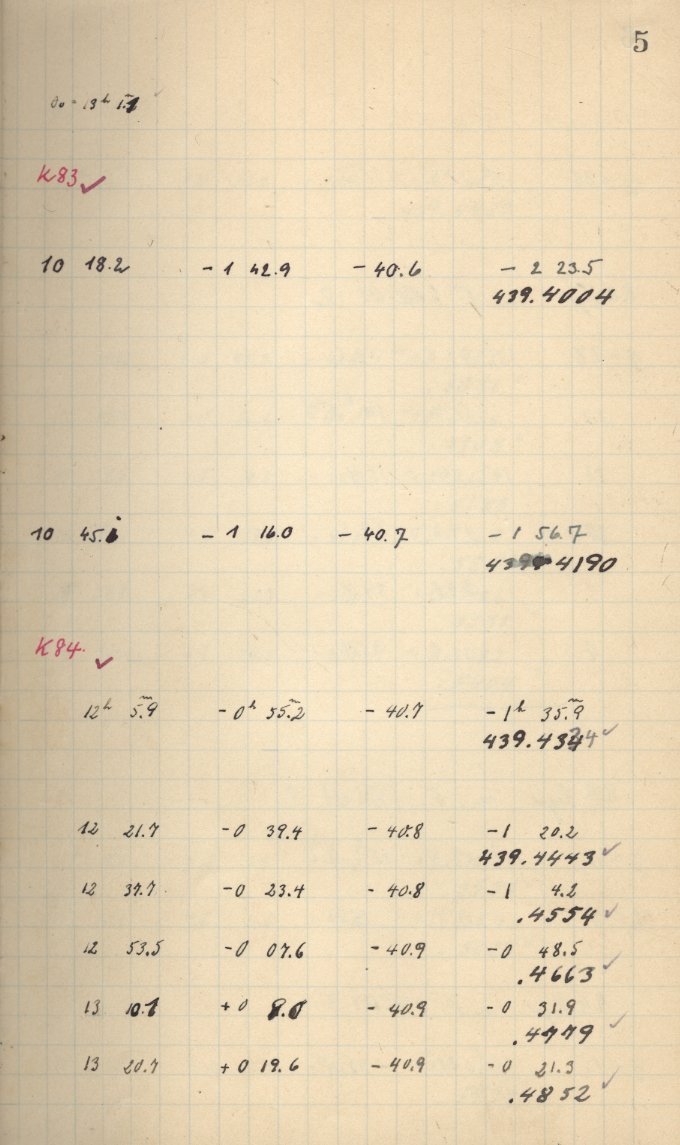 θ₀ = 13ʰ 1.1ᵐ
5
K83 ✓
10 18.2 - 1 42.9 - 40.6 - 2 23.5
439.4004
10 45.1 - 1 16.0 - 40.7 - 1 56.7
439.4190
K84. ✓
12ʰ 5.9ᵐ - 0ʰ 55.2ᵐ - 40.7 - 1ʰ 35.9ᵐ
439.4334 ✓
12 21.7 - 0 39.4 - 40.8 - 1 20.2
439.4443 ✓
12 37.7 - 0 23.4 - 40.8 - 1 4.2
.4554 ✓
12 53.5 - 0 07.6 - 40.9 - 0 48.5
.4663 ✓
13 10.1 + 0 9.0 - 40.9 - 0 31.9
.4779 ✓
13 20.7 + 0 19.6 - 40.9 - 0 21.3
.4852 ✓